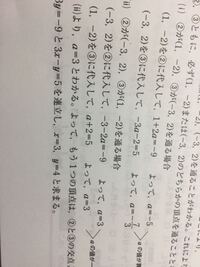 ともに，必ず(1, −2)または(−3, 2)のどちらかの頂点を通ること
ることがわかる。これによ
②が(1, −2)，③が(−3, 2)を通る場合
(1, −2)を②に代入して，1+2a=−9 よって，a=−5
(−3, 2)を③に代入して，−3a−2=5 よって，a=−7/3
aの値が
②が(−3, 2)，③が(1, −2)を通る場合
(−3, 2)を②に代入して，−3−2a=−9 よって，a=3
(1, −2)を③に代入して，a+2=5 よって，a=3
aの値が
(ii)より，a=3とわかる。よって，もう1つの頂点は，②と③の交点
3y=−9と3x−y=5を連立し，x=3，y=4と求まる。